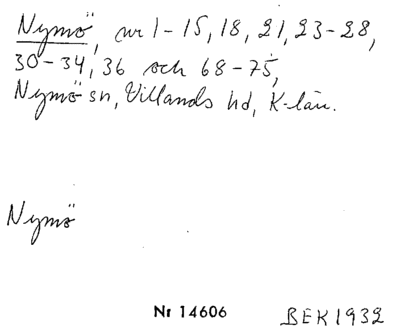 Nymö, nr 1-15, 18, 21, 23-28,
30-34, 36 och 68-75,
Nymö sn, Villands hd, K-län.
Nymö
Nr 14606 BEK 1932